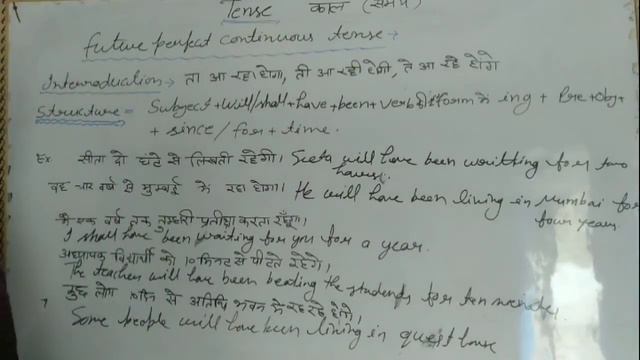 Tense काल (समय)
future perfect continuous tense →
Interroducation → ता आ रहा होगा, ती आ रही होगी, ते आ रहे होंगे
Structure = Subject + will/shall + have + been + verb की I form में ing + Pre + Obj
+ since / for + time.
Ex सीता दो घंटे से लिखती रहेगी। Seeta will have been writting for two
hours.
वह चार वर्ष से मुम्बई में रहा होगा। He will have been living in Mumbai for
four years
मैं एक वर्ष तक तुम्हारी प्रतीक्षा करता रहूँगा।
I shall have been waiting for you for a year.
अध्यापक विद्यार्थी को 10 मिनट से पीटते रहेंगे।
The teacher will have been beating the students for ten
कुछ लोग से अतिथि भवन में रह रहे होंगे।
Some people will have been living in guest house